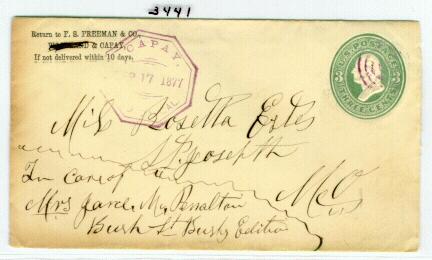 3441
Return to F. S. FREEMAN & CO.
& CAPAY,
If not delivered within 10 days.
CAPAY,
17 1877
CAL
U.S. POSTAGE
THREE CENTS
Miss Rosetta Estes
St. Joseph
In care of
Mo
Mrs Jane M.
Bush St Bushs Edition